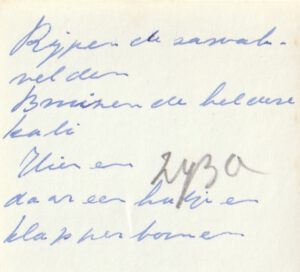 Rijpende sawah-
velden
Bruisende heldere
kali
Hier en
daar een hutje en
klapperbomen